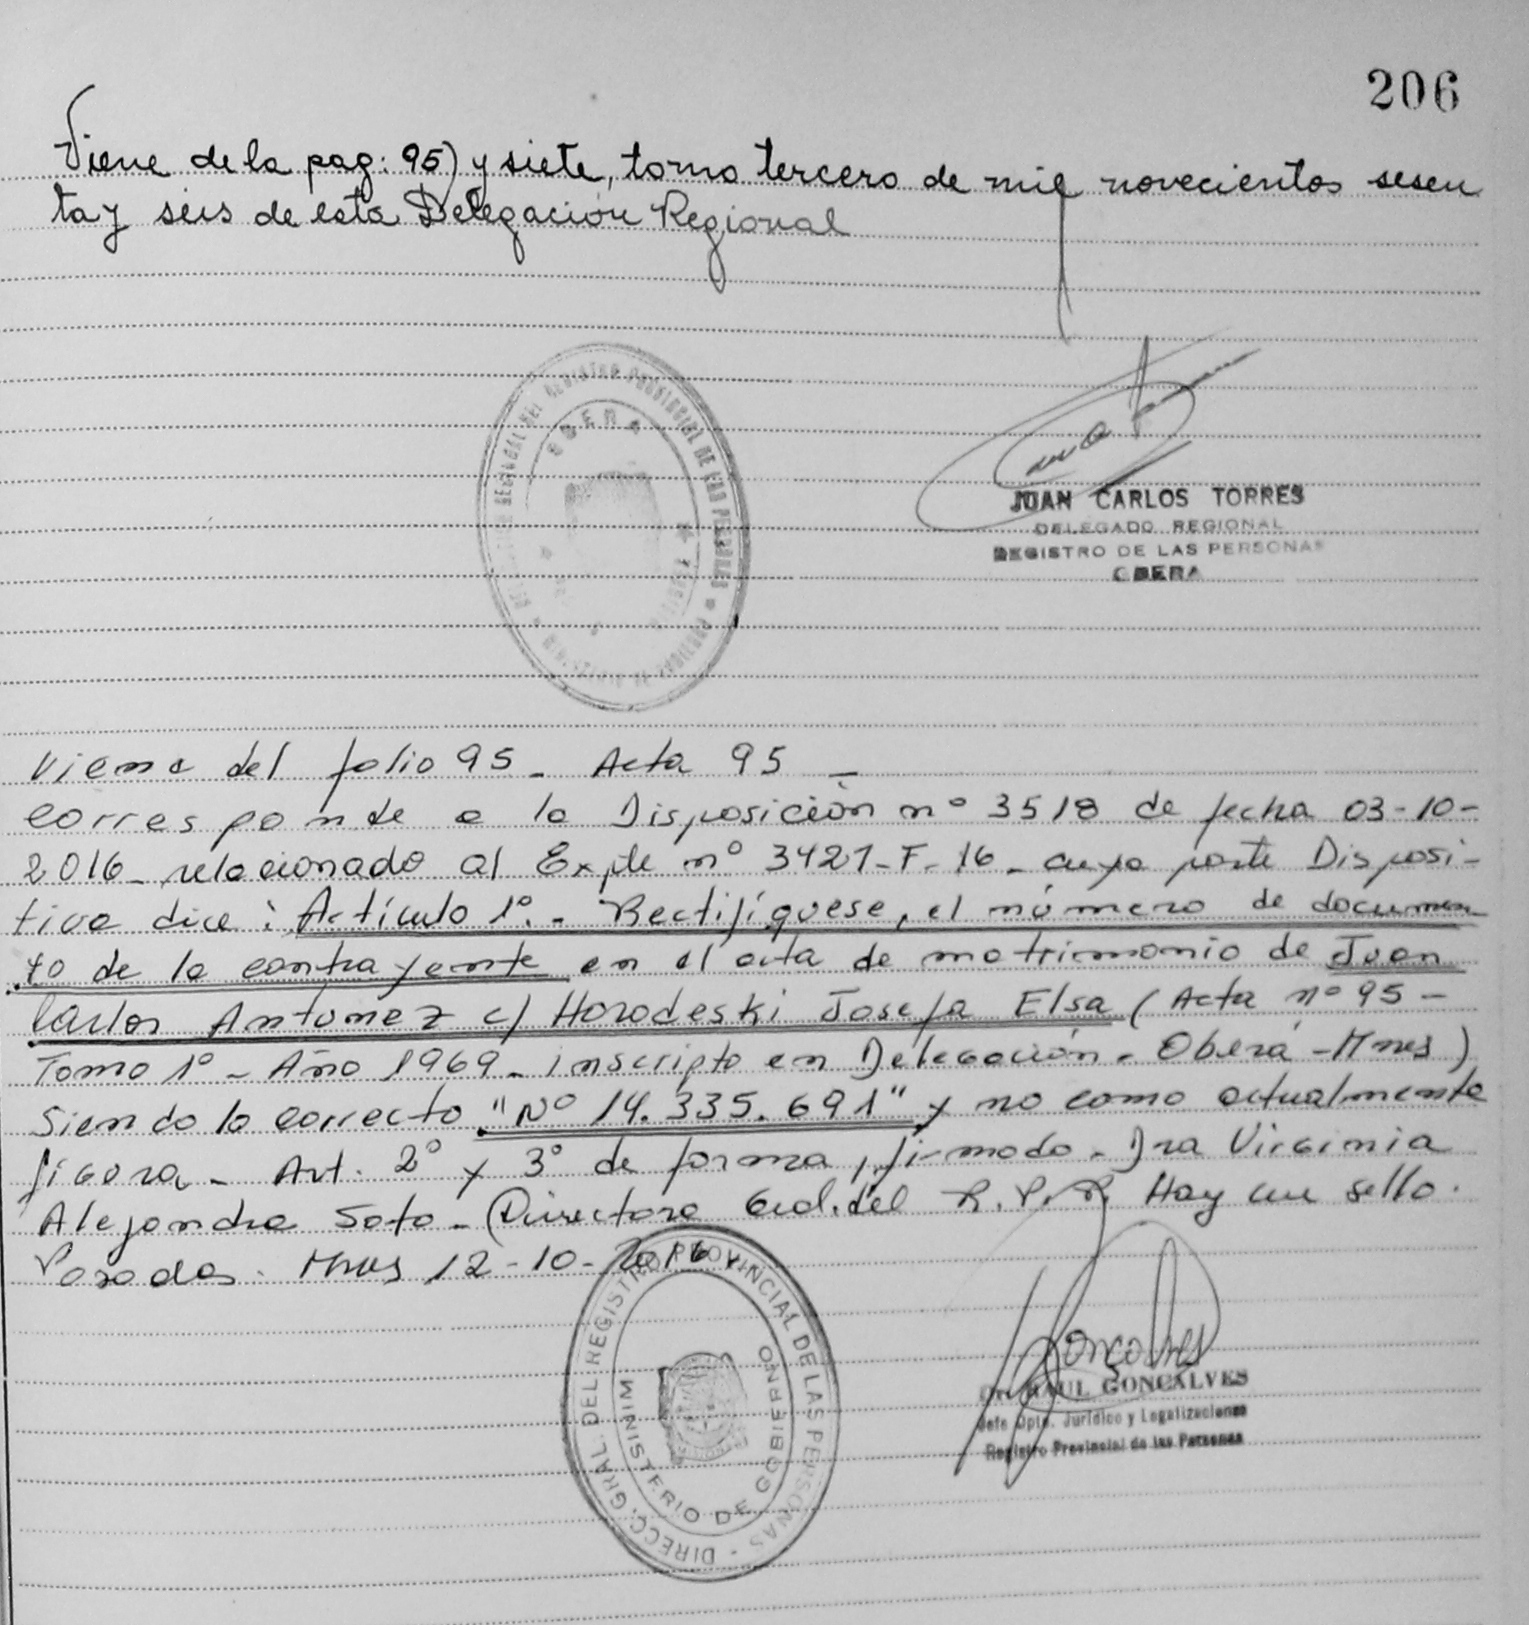 206
Viene de la pag: 95) y siete, tomo tercero de mil novecientos sesen
ta y seis de esta Delegación Regional
OBERA
JUAN CARLOS TORRES
DELEGADO REGIONAL
REGISTRO DE LAS PERSONAS
OBERA
Viene del folio 95 - Acta 95 -
Corresponde a la Disposición nº 3518 de fecha 03-10-
2016 - relacionado al Expte nº 3421-F-16 - cuya parte Disposi-
tiva dice: Artículo 1º. - Rectifíquese, el número de documen
to de la contrayente en el acta de matrimonio de Juan
Carlos Antunez c/ Horodeski Josefa Elsa (Acta nº 95 -
Tomo 1º - Año 1969 - inscripto en Delegación - Oberá - Mnes)
Siendo lo correcto "Nº 14.335.691" y no como actualmente
figura - Art. 2º y 3º de forma, firmado - Dra Virginia
Alejandra Soto - (Directora Gral. del R.P.P. Hay un sello.
Posadas. Mnes 12-10-2016
DIRECC. GRAL. DEL REGISTRO PROVINCIAL DE LAS PERSONAS -
MINISTERIO DE GOBIERNO
Goncalves
Dr. RAUL GONCALVES
Jefe Dpto. Jurídico y Legalizaciones
Registro Provincial de las Personas